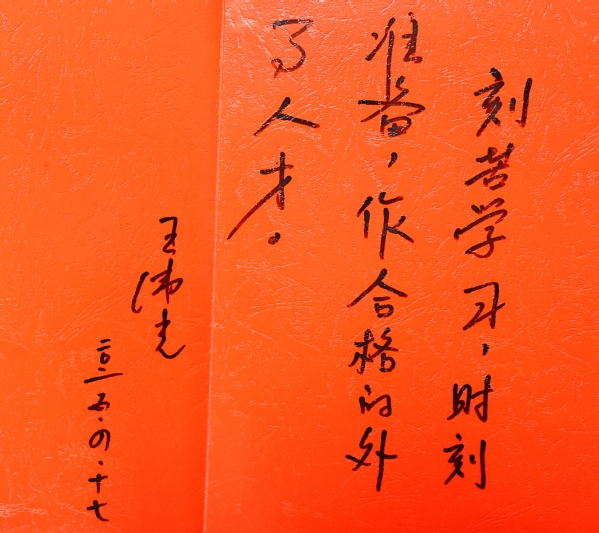 刻苦学习，时刻
准备，作合格的外
人才。
王伟光
二〇一五.四.十七